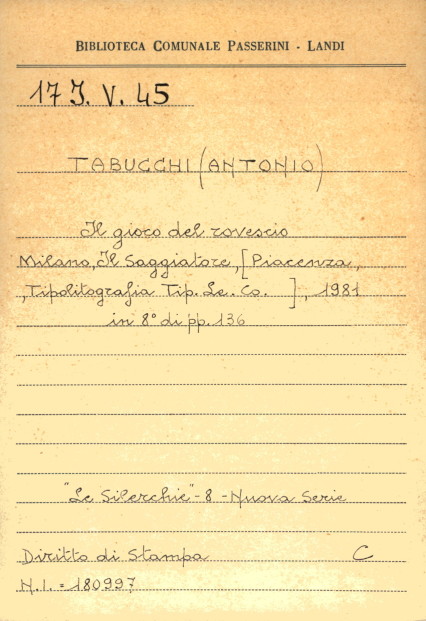 BIBLIOTECA COMUNALE PASSERINI - LANDI
17 J. V. 45
TABUCCHI (ANTONIO)
Il gioco del rovescio
Milano, Il Saggiatore, [Piacenza,
, Tipolitografia Tip. Le. Co. ], 1981
in 8° di pp. 136
"Le Silerchie" - 8 - Nuova Serie
Diritto di Stampa C
N.I. = 180997